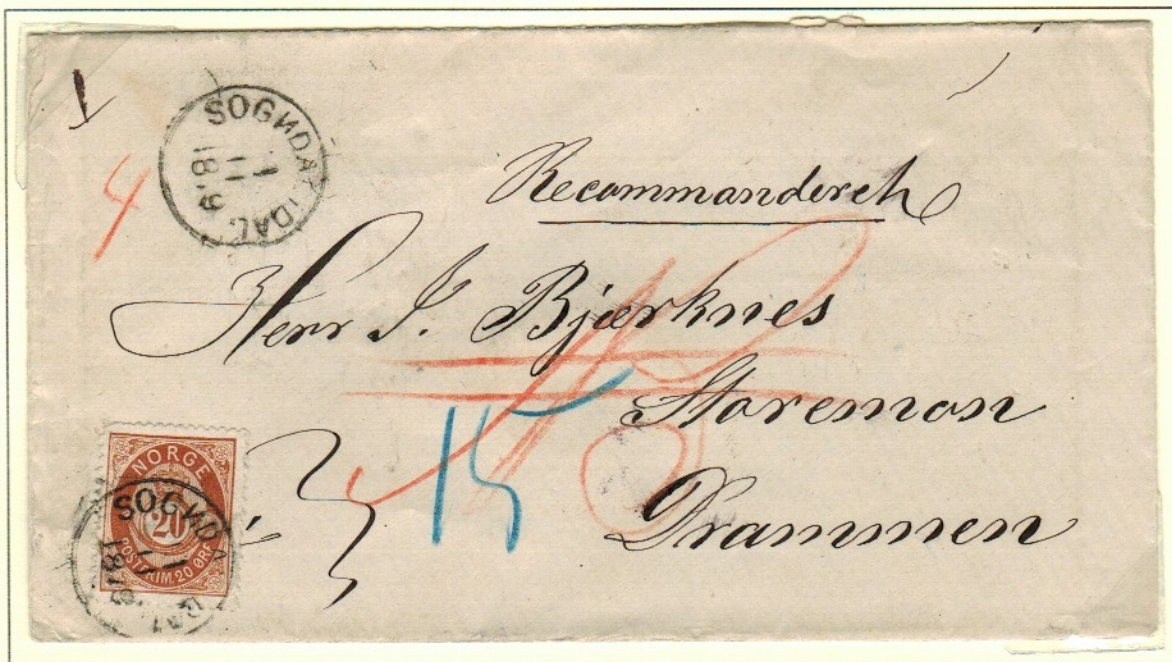 I
SOGNDAL
11
1879
4
Recommanderet
Herr J. Bjærknes
Storemoen
Drammen
15
NORGE
20
POSTFRIM. 20 ØRE
SOGNDAL